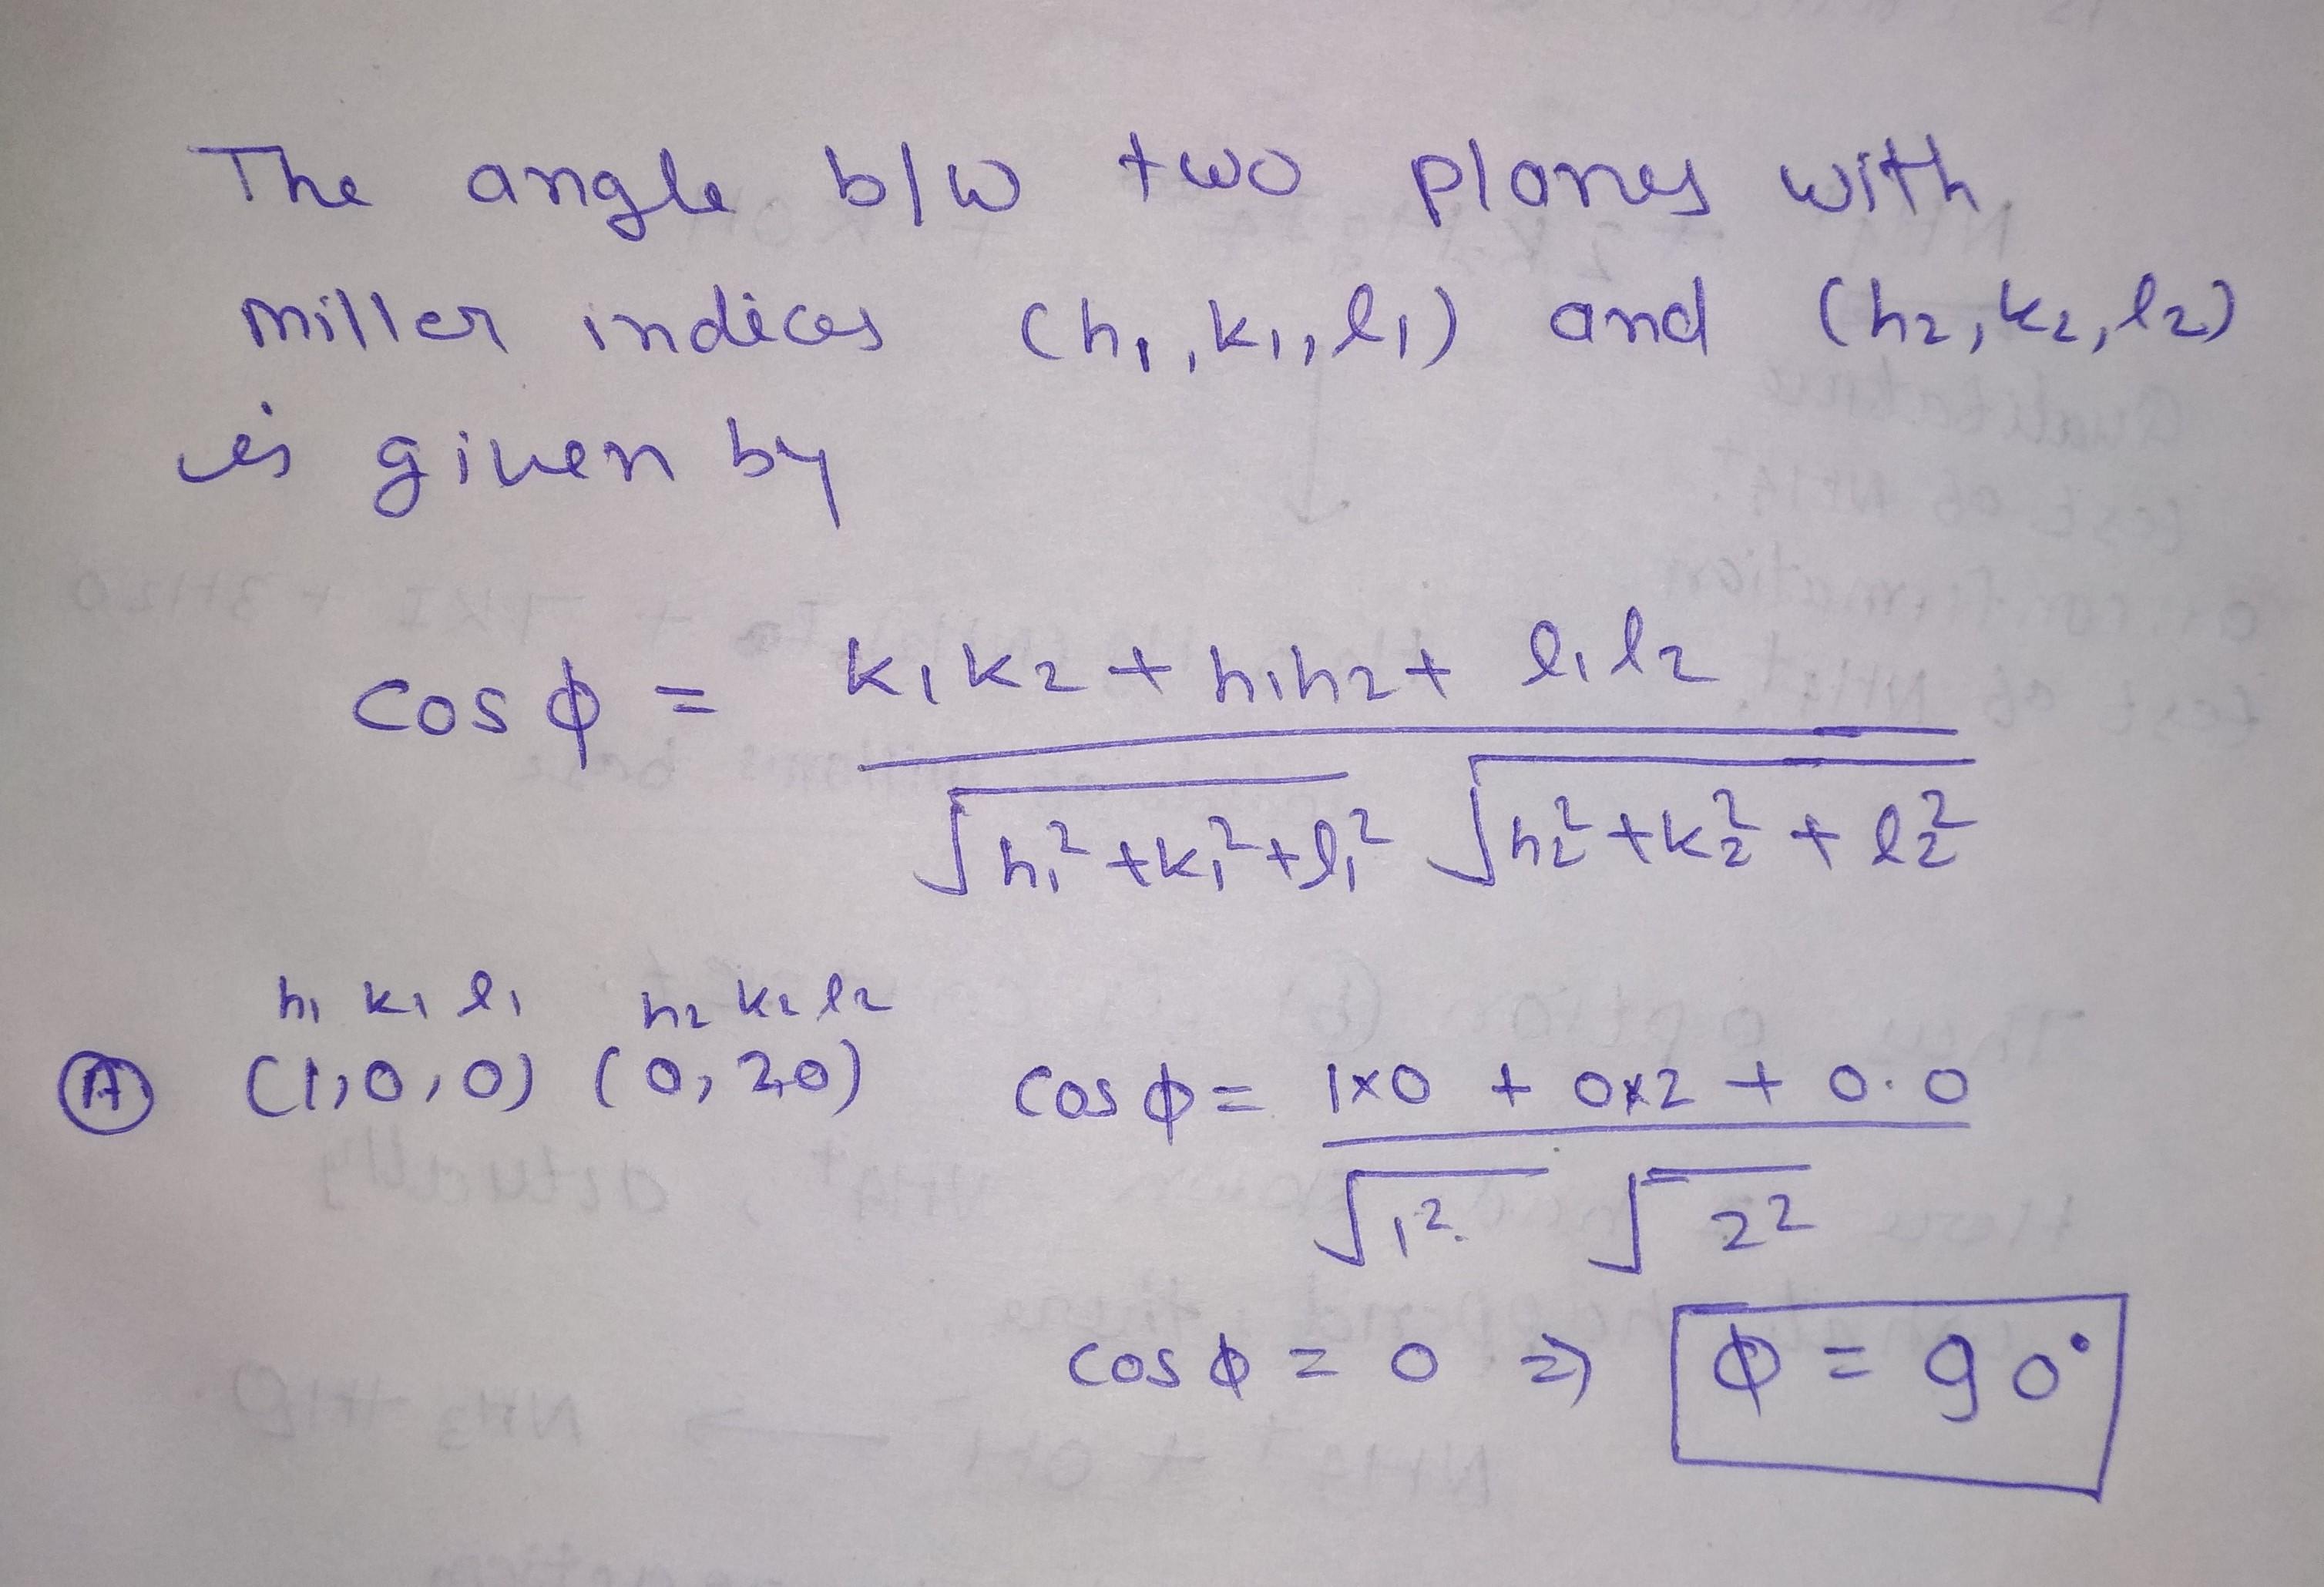 The angle b/w two planes with
miller indices (h₁, k₁, l₁) and (h₂, k₂, l₂)
is given by
cos ϕ = k₁k₂ + h₁h₂ + l₁l₂ / √h₁² + k₁² + l₁² √h₂² + k₂² + l₂²
h₁ k₁ l₁ h₂ k₂ l₂
Ⓐ (1,0,0) (0,2,0) cos ϕ = 1×0 + 0×2 + 0.0 / √1² √2²
cos ϕ = 0 ⇒ ϕ = 90°